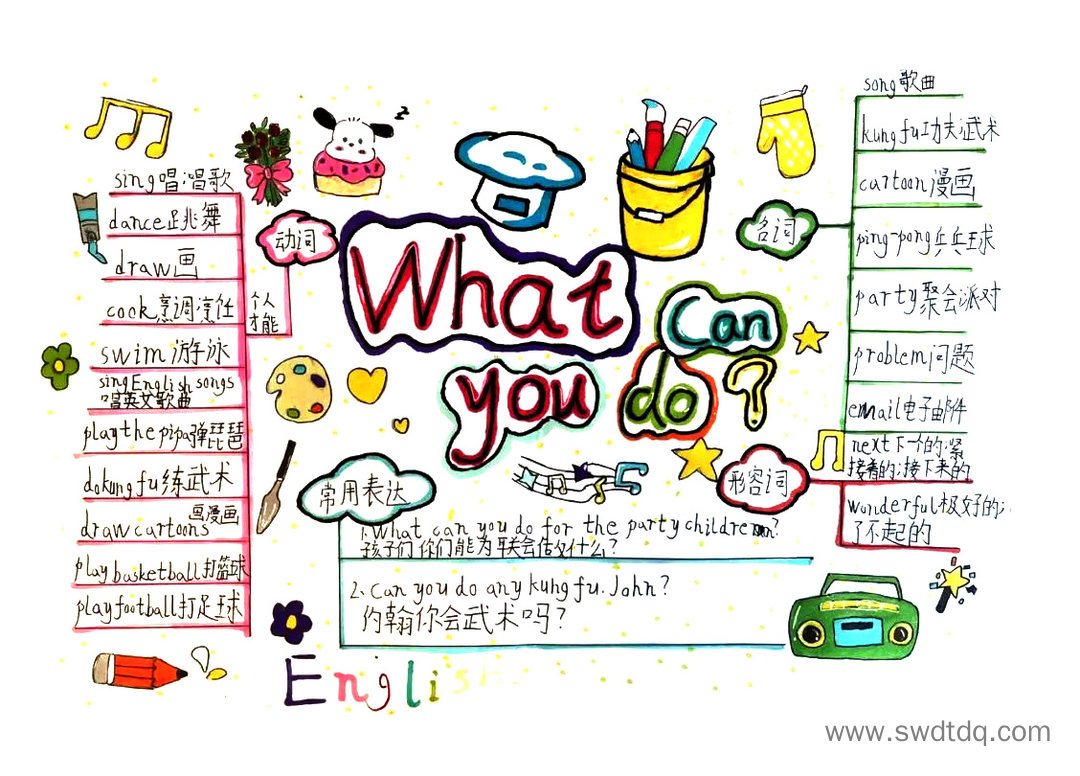 What
can
you
do?
动词
个人
才能
sing唱;唱歌
dance跳舞
draw画
cook烹调;烹饪
swim游泳
sing English songs
唱英文歌曲
play the pipa弹琵琶
do kung fu练武术
画漫画
draw cartoons
play basketball打篮球
play football打足球
名词
song歌曲
kung fu功夫;武术
cartoon漫画
ping-pong乒乓球
party聚会;派对
problem问题
email电子邮件
形容词
next下一个的;紧
接着的;接下来的
wonderful极好的;
了不起的
常用表达
1.What can you do for the party children?
孩子们你们能为联会做什么?
2、Can you do any kung fu. John?
约翰你会武术吗?
English
www.swdtdq.com